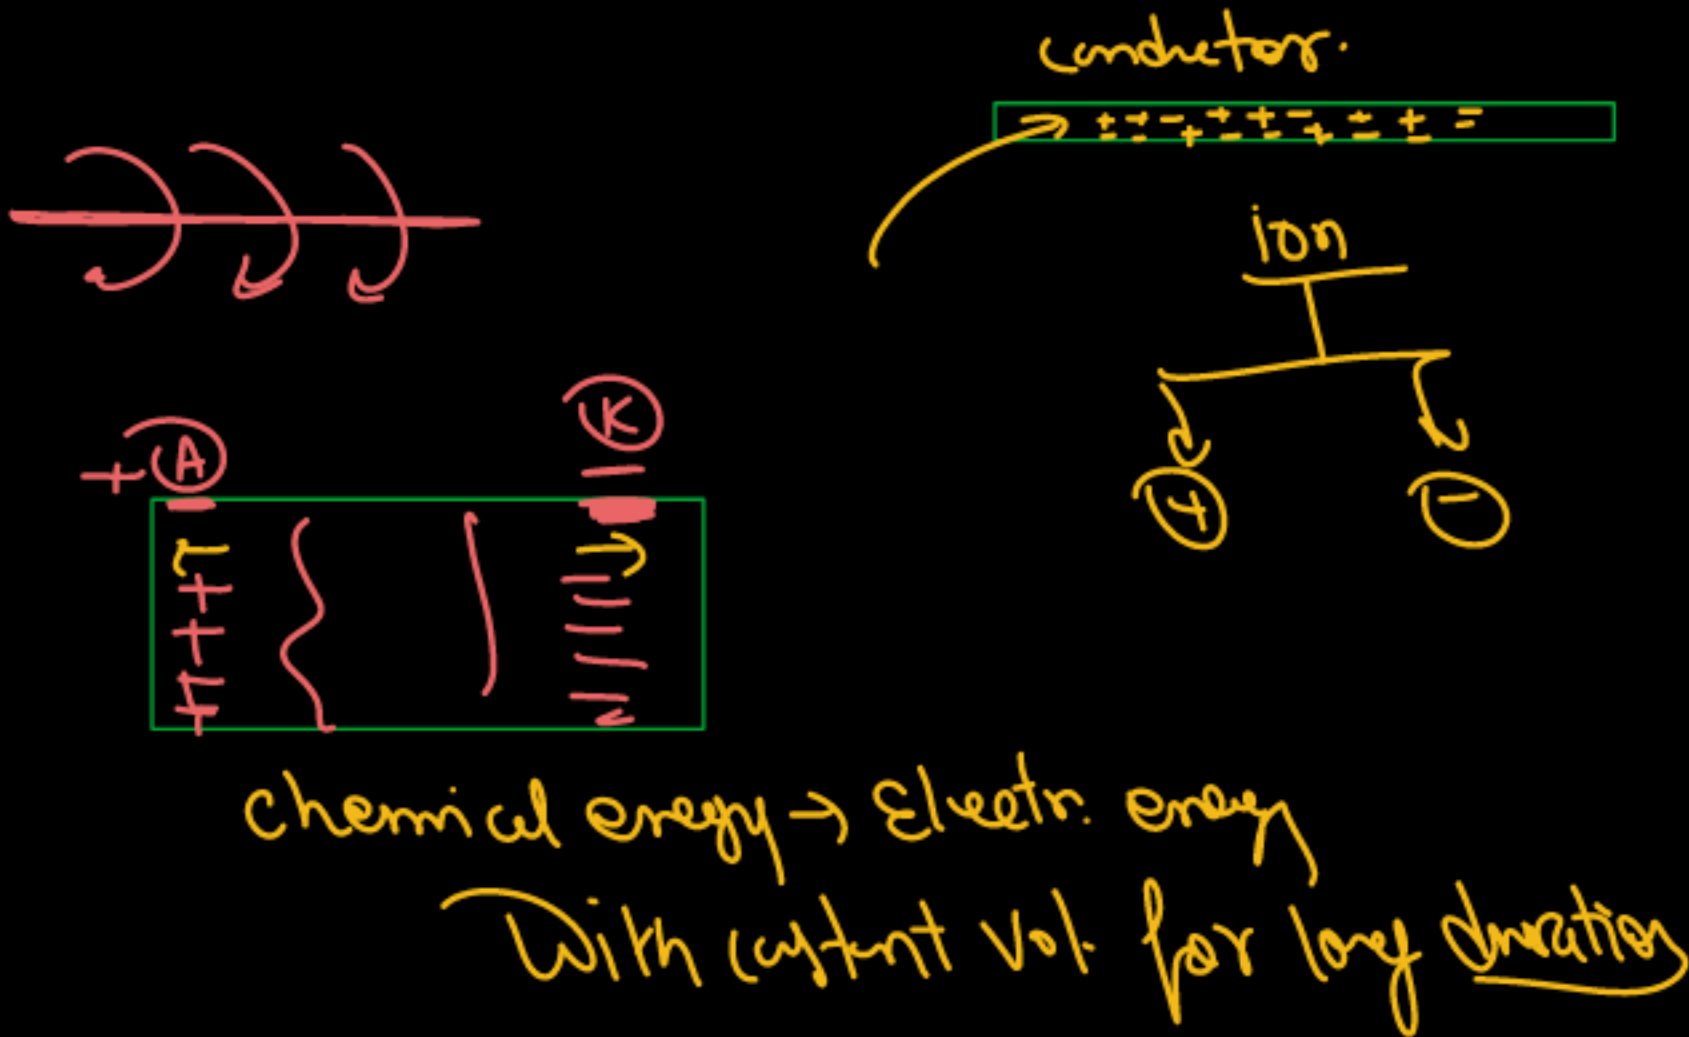 conductor.
ion
+ A
K
+
-
chemical energy → Electr. energy
With constant Vol. for long duration